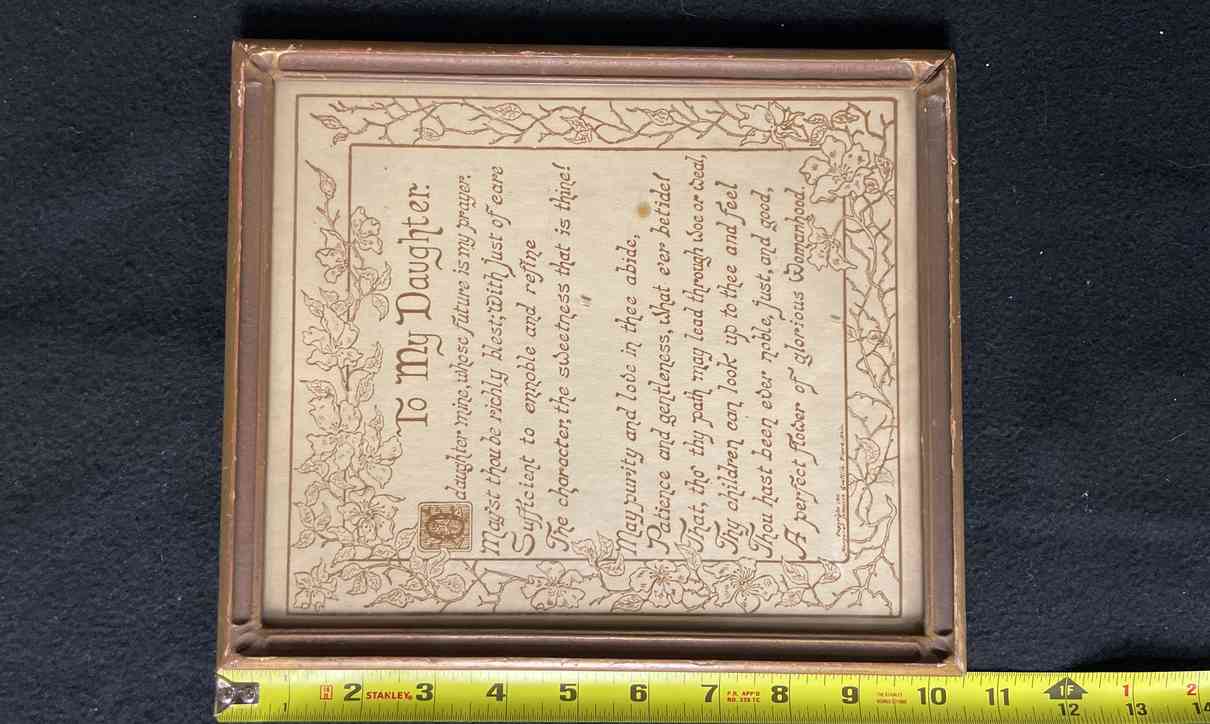 To My Daughter.
O daughter mine, whose future is my prayer.
May'st thou be richly blest; With just of care
Sufficient to ennoble and refine
The character, the sweetness that is thine!
May purity and love in thee abide,
Patience and gentleness, what e'er betide!
That, tho' thy path may lead through woe or weal,
Thy children can look up to thee and feel
Thou hast been ever noble, just, and good,
A perfect flower of glorious Womanhood.
Copyright
1 2 STANLEY® 3 4 5 6 7 P.R. APP'D NO. 376 TC 8 9 10 11 1F 12 1 13 2 14